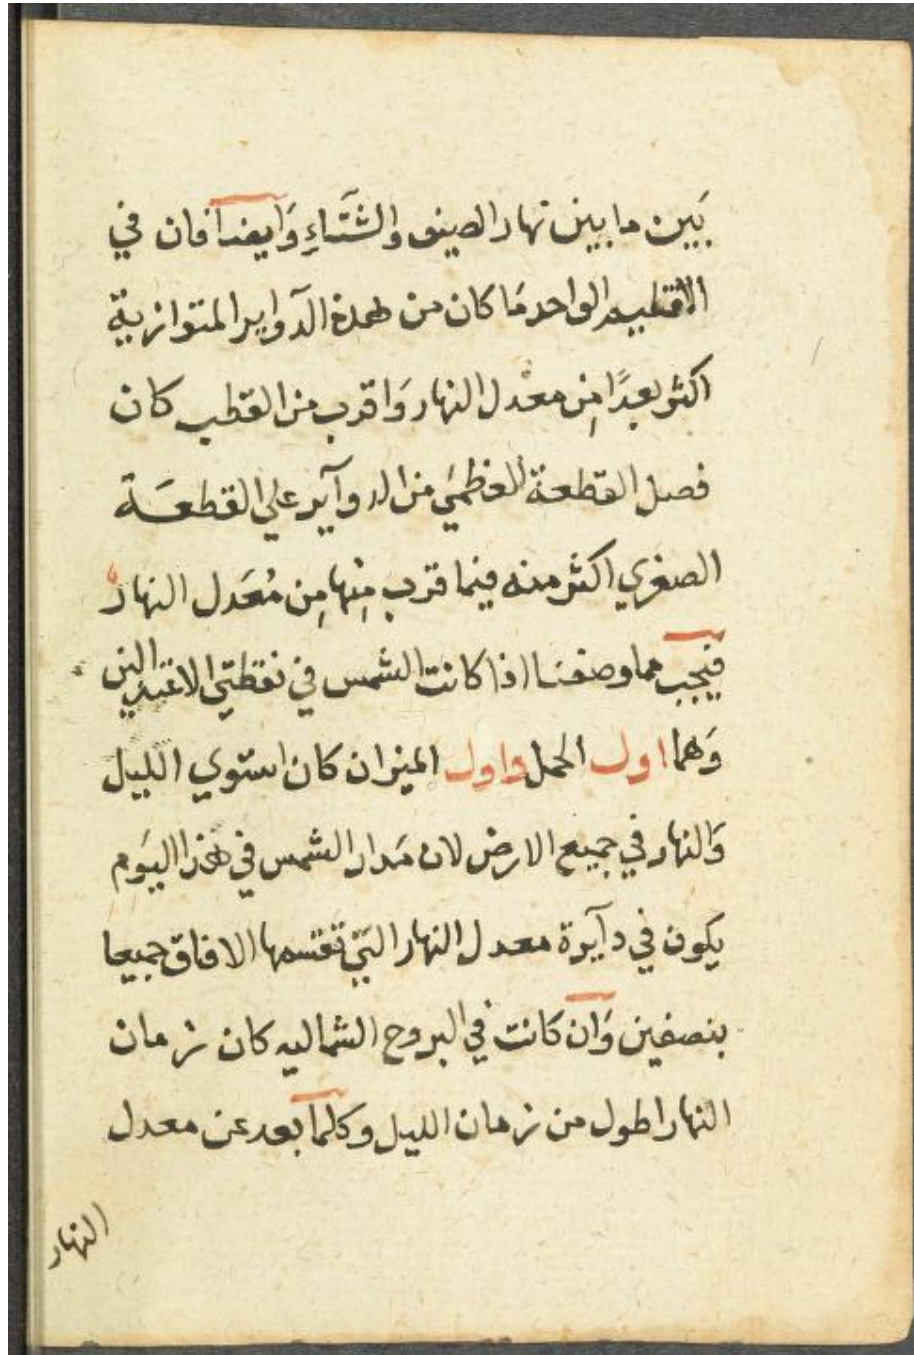 بَين ما بين نهار الصيف والشتَاءِ وَايضا فان في
الاقليم الواحد مَا كان من هذه الدوآير المتوازية
اكثر بعدًا مِن معدل النهار وَاقرب من القطب كان
فصل القطعة العظمَي من الدوآير علي القطعَة
الصغري اكثر منه فيما قرب مِنها مِن مُعَدل النهار
فيجب مما وصفنا اذا كانت الشمس في نقطتي الاعتدالين
وَهما اول الحمل واول الميزان كان استوي الليل
وَالنهار في جميع الارض لان مَدار الشمس في هذا اليَوم
يكون في دآيرة معدل النهار التي تقسمها الافاق جميعا
بنصفين وَان كانت في البروج الشماليه كان زمان
النهار اطول من زمان الليل وكلما بعد عن معدل
النهار